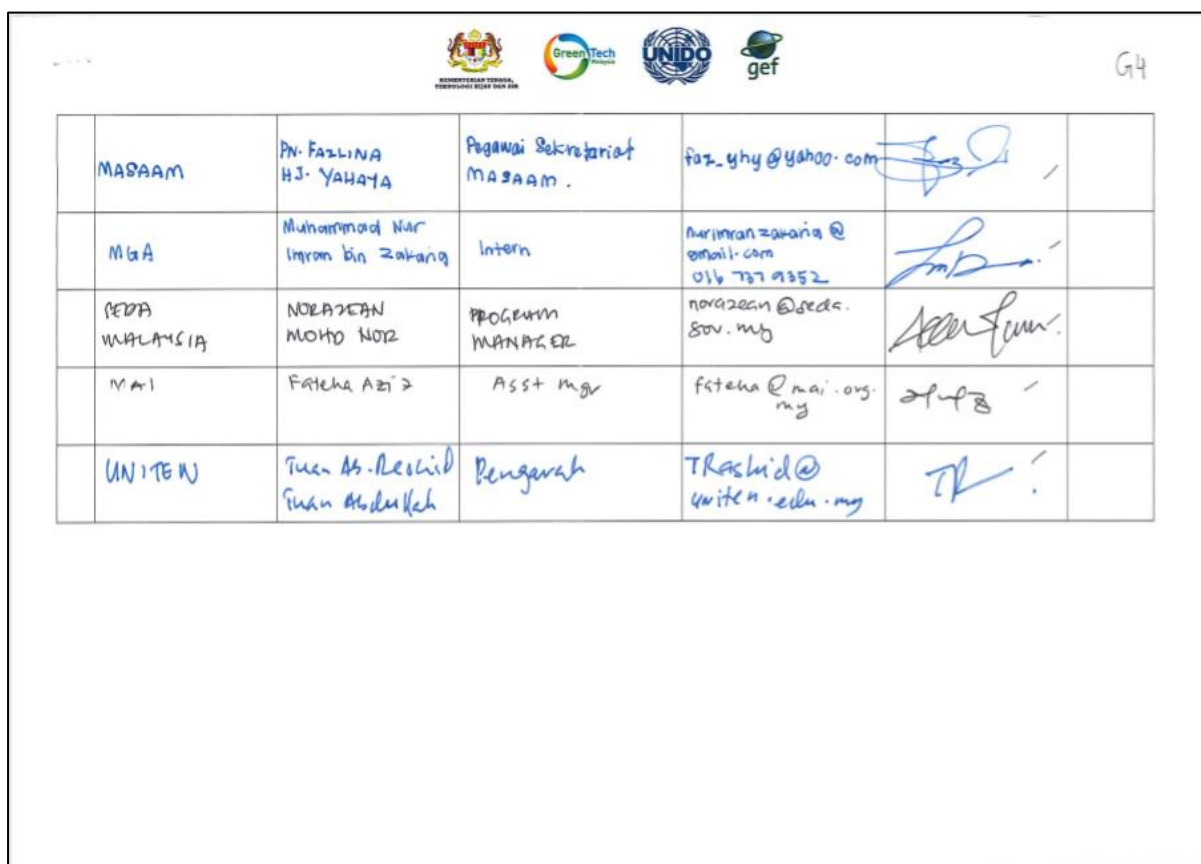 KEMENTERIAN TENAGA,
TEKNOLOGI HIJAU DAN AIR
GreenTech
Malaysia
UNIDO
gef
G4
MASAAM
PN. FAZLINA
HJ. YAHAYA
Pegawai Sekretariat
MASAAM.
faz_yhy@yahoo.com
MGA
Muhammad Nur
Imran bin Zakaria
Intern
nurimranzakaria@
gmail.com
016 737 9352
SEDA
MALAYSIA
NORAZEAN
MOHD NOR
PROGRAM
MANAGER
norazean@seda.
gov.my
MAI
Fateha Aziz
Asst mgr
fateha@mai.org.
my
UNITEN
Tuan Ab. Rashid
Tuan Abdullah
Pengarah
TRashid@
uniten.edu.my
TR